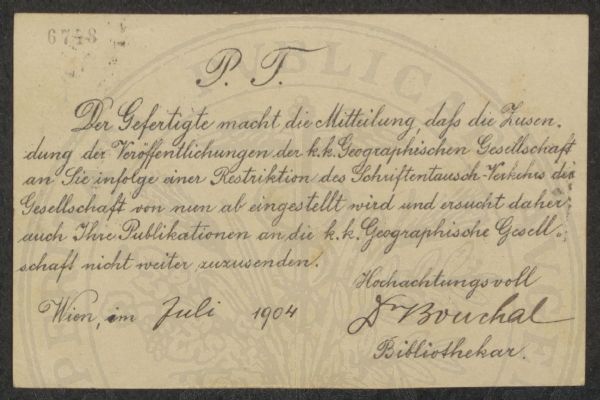 6748
P. T.
Der Gefertigte macht die Mitteilung, daſs die Zusen-
dung der Veröffentlichungen der k.k. Geographischen Gesellschaft
an Sie infolge einer Restriktion des Schriftentausch-Verkehrs der
Gesellschaft von nun ab eingestellt wird und ersucht daher,
auch Ihre Publikationen an die k.k. Geographische Gesell-
schaft nicht weiter zuzusenden.
Hochachtungsvoll
Wien, im Juli 1904
Dr Bouchal
Bibliothekar.